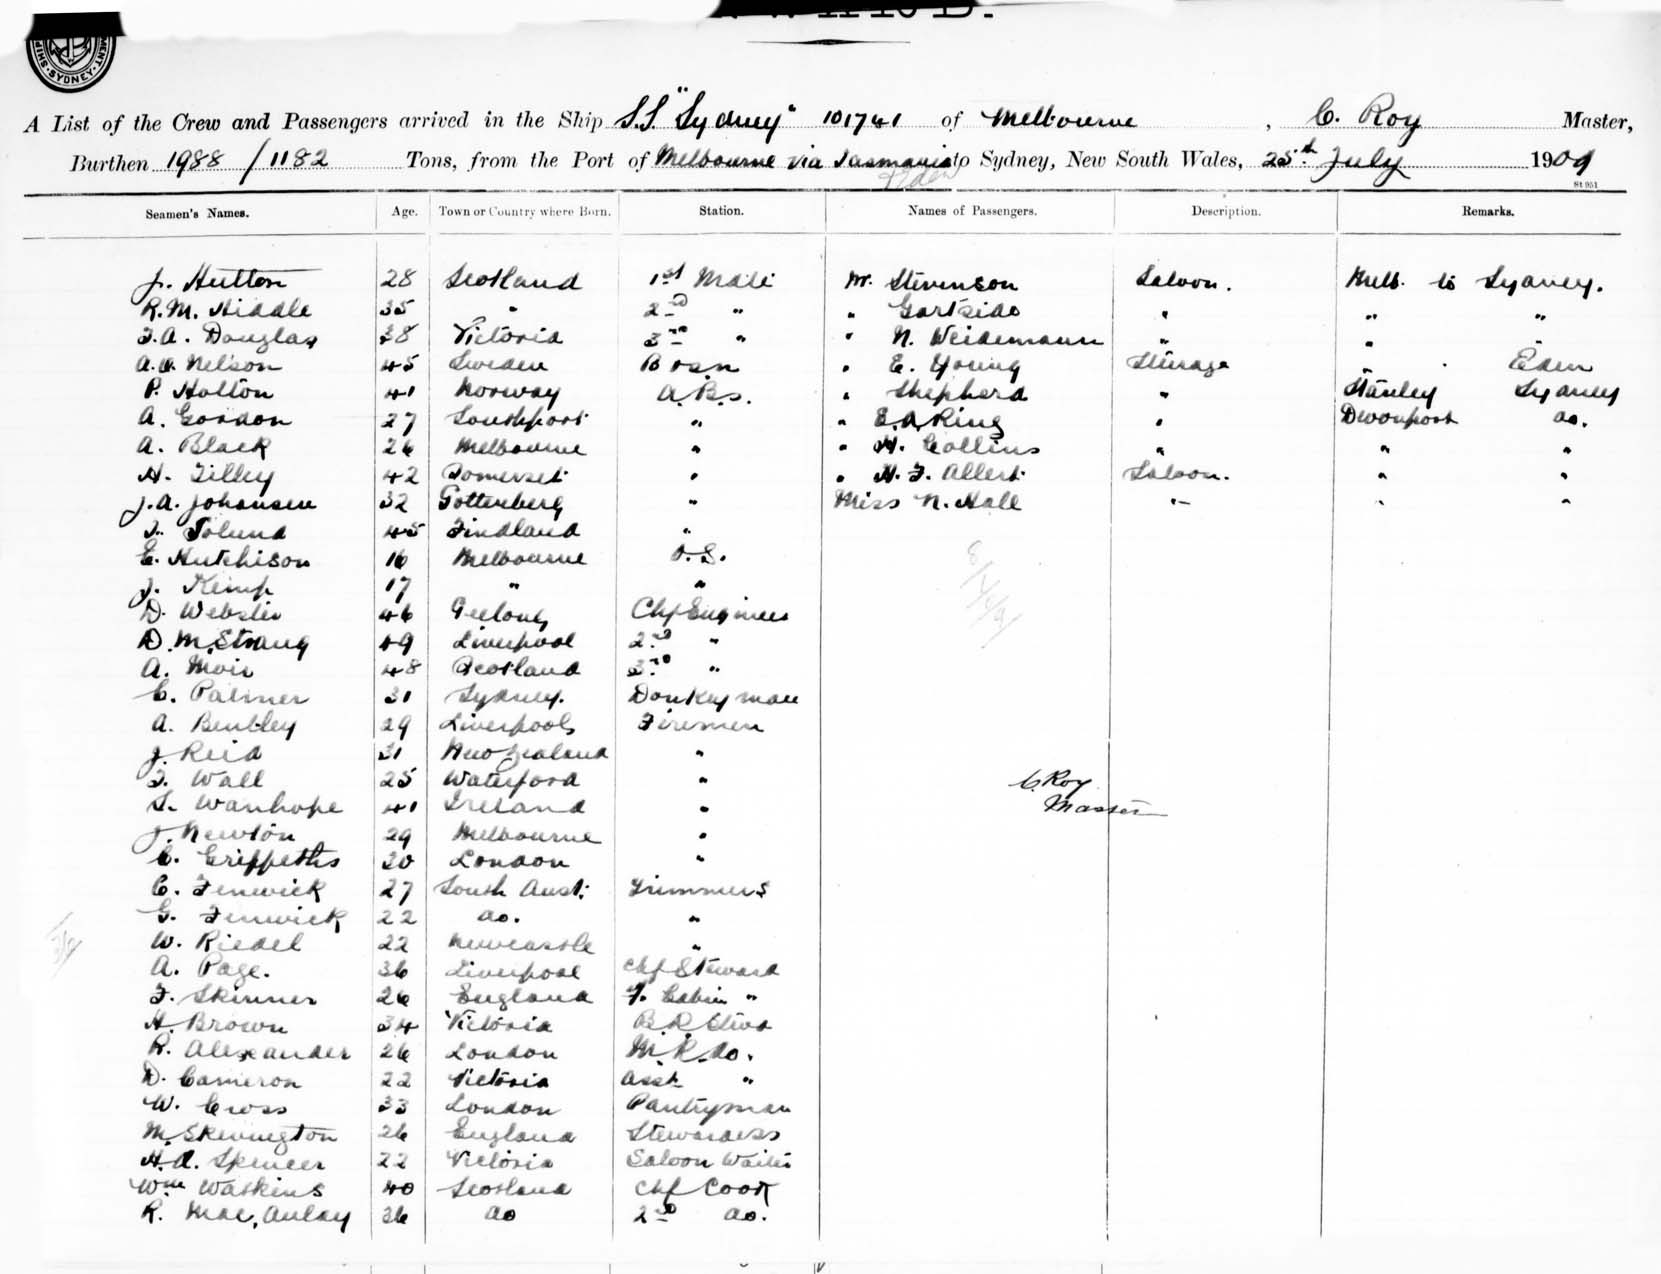 SYDNEY
A List of the Crew and Passengers arrived in the Ship S.S. "Sydney" 101741 of Melbourne, C. Roy Master,
Burthen 1988/1182 Tons, from the Port of Melbourne via Tasmania to Sydney, New South Wales, 25th July 1909
Eden
St 951
Seamen's Names. Age. Town or Country where Born. Station. Names of Passengers. Description. Remarks.
J. Hutton 28 Scotland 1st Mate Mr. Stevenson Saloon. Melb. to Sydney.
R.M. Hiddle 35 " 2nd " " Gartside " " "
F.A. Douglas 38 Victoria 3rd " " N. Weidemann " " "
A.O. Nelson 45 Sweden Bosn " E. Young Steerage " Eden
P. Holton 41 Norway A.B.s. " Shepherd " Stanley Sydney
A. Gordon 27 Southport " " E.A. King " Devonport do.
A. Black 26 Melbourne " " H. Collins " " "
H. Tilley 42 Somerset " " H. F. Allert Saloon. " "
J.A. Johansen 32 Gottenberg " Miss N. Hall " " "
45 Findland "
E. Hutchison 16 Melbourne O.S.
J. Kemp 17 " "
D. Webster 46 Geelong Chf Engineer
D. M. Strang 49 Liverpool 2nd "
A. Moir 48 Scotland 3rd "
C. Palmer 31 Sydney. Donkeyman
A. Bentley 29 Liverpool Firemen
J. Reid 31 New Zealand "
F. Wall 25 Waterford "
S. Wanhope 41 Ireland "
C. Roy
Master
J. Newton 29 Melbourne "
C. Griffeths 30 London "
C. Fenwick 27 South Aust. Trimmers
G. Fenwick 22 do. "
W. Riedel 22 Newcastle "
A. Page. 36 Liverpool Chf Steward
F. Skinner 26 England F. Cabin "
H. Brown 34 Victoria B.R. Stwd
R. Alexander 26 London M.R. do.
D. Cameron 22 Victoria Asst "
W. Cross 33 London Pantryman
M. Skevington 26 England Stewardess
H.A. Spencer 22 Victoria Saloon Waiter
Wm Watkins 40 Scotland Chf Cook
R. Mac, Aulay 36 do 2nd do.